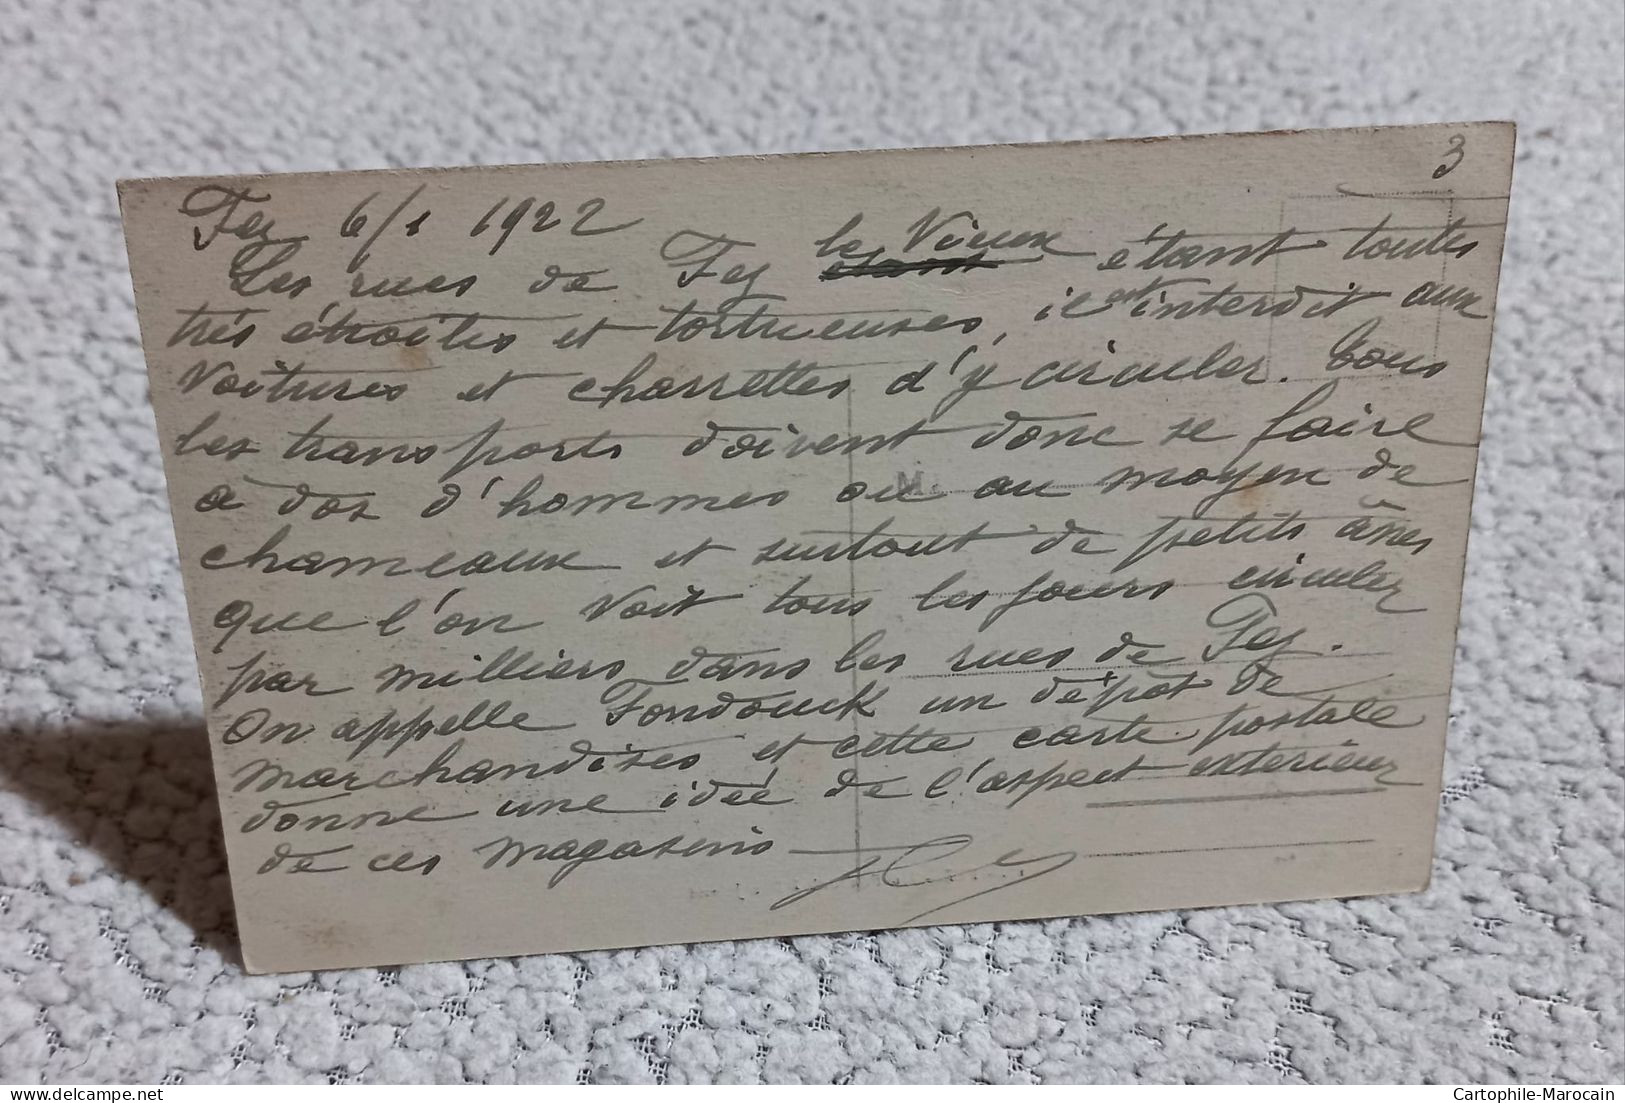 3
Fez 6/1 1922
Les rues de Fez le Vieux étant toutes
très étroites et tortueuses, il est interdit aux
voitures et charrettes d'y circuler. Tous
les transports doivent donc se faire
à dos d'hommes ou au moyen de
chameaux et surtout de petits ânes
que l'on voit tous les jours circuler
par milliers dans les rues de Fez.
On appelle Fondouck un dépôt de
marchandises et cette carte postale
donne une idée de l'aspect exterieur
de ces magasins
M.
Cartophile-Marocain